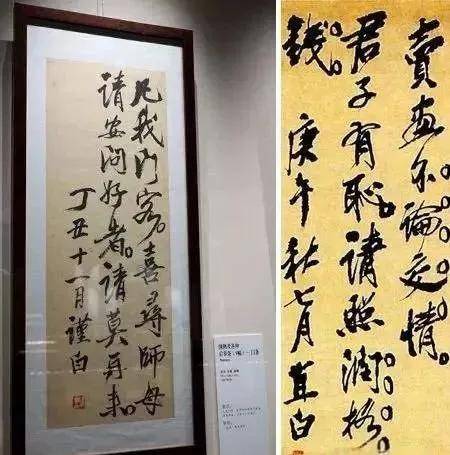 凡我門客。喜尋師母
請安問好者。請莫再来。
丁丑十一月謹白
賣画不論交情。
君子有恥。請照潤格。
錢。庚午秋七月直白